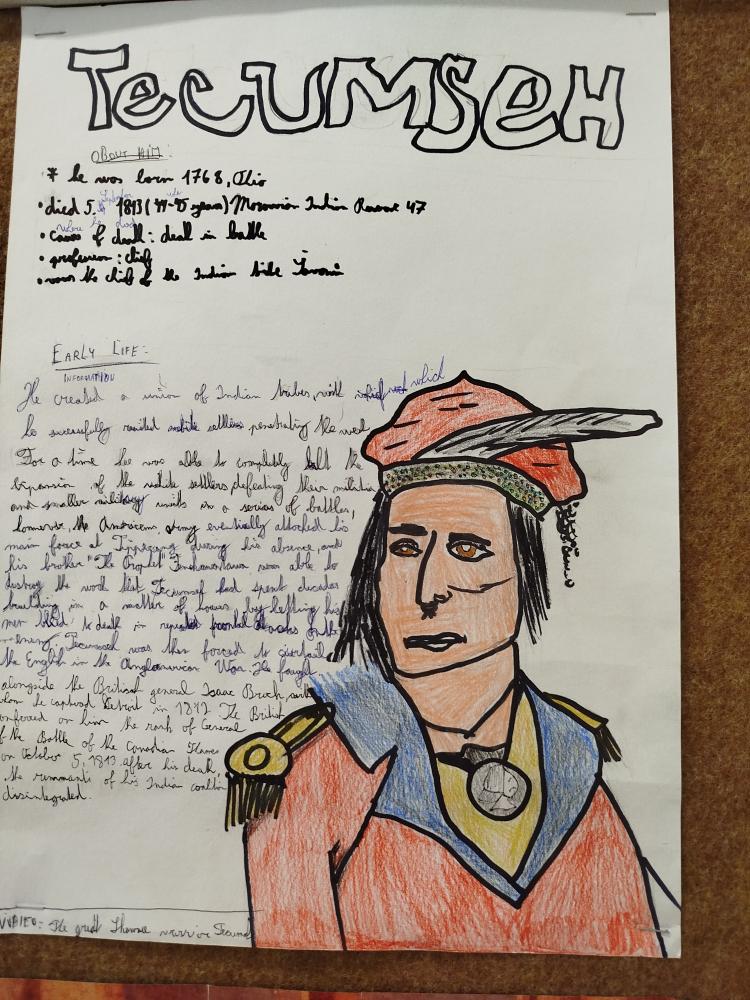 TECUMSEH
ABOUT HIM:
* he was born 1768, Ohio
• died 5. 1813 (44-45 years) Moravian Indian 47
• death: deat in battle
where he died
• : chief
• was the chief of the Indian
EARLY LIFE:
INFORMATION
He created a union of Indian tribes, with which
he successfully raided white settlers penetrating the west
For a time he was able to completely halt the
expansion of the white settlers, defeating their militia
and smaller military units in a series of battles,
the American army eventually attacked his
main force at during his absence, and
his brother "The Prophet" was able to
destroy the work that Tecumseh had spent decades
building in a matter of hours, by letting his
men bleed to death in repeated frontal attacks on the
enemy. Tecumseh was then forced to
the English in the War. He fought
alongside the British general Isaac Brock, with
he captured Detroit in 1812. The British
on him the rank of General
the Battle of the Canadian
on October 5, 1813 after his death,
the remnants of his Indian
disintegrated.
The great warrior